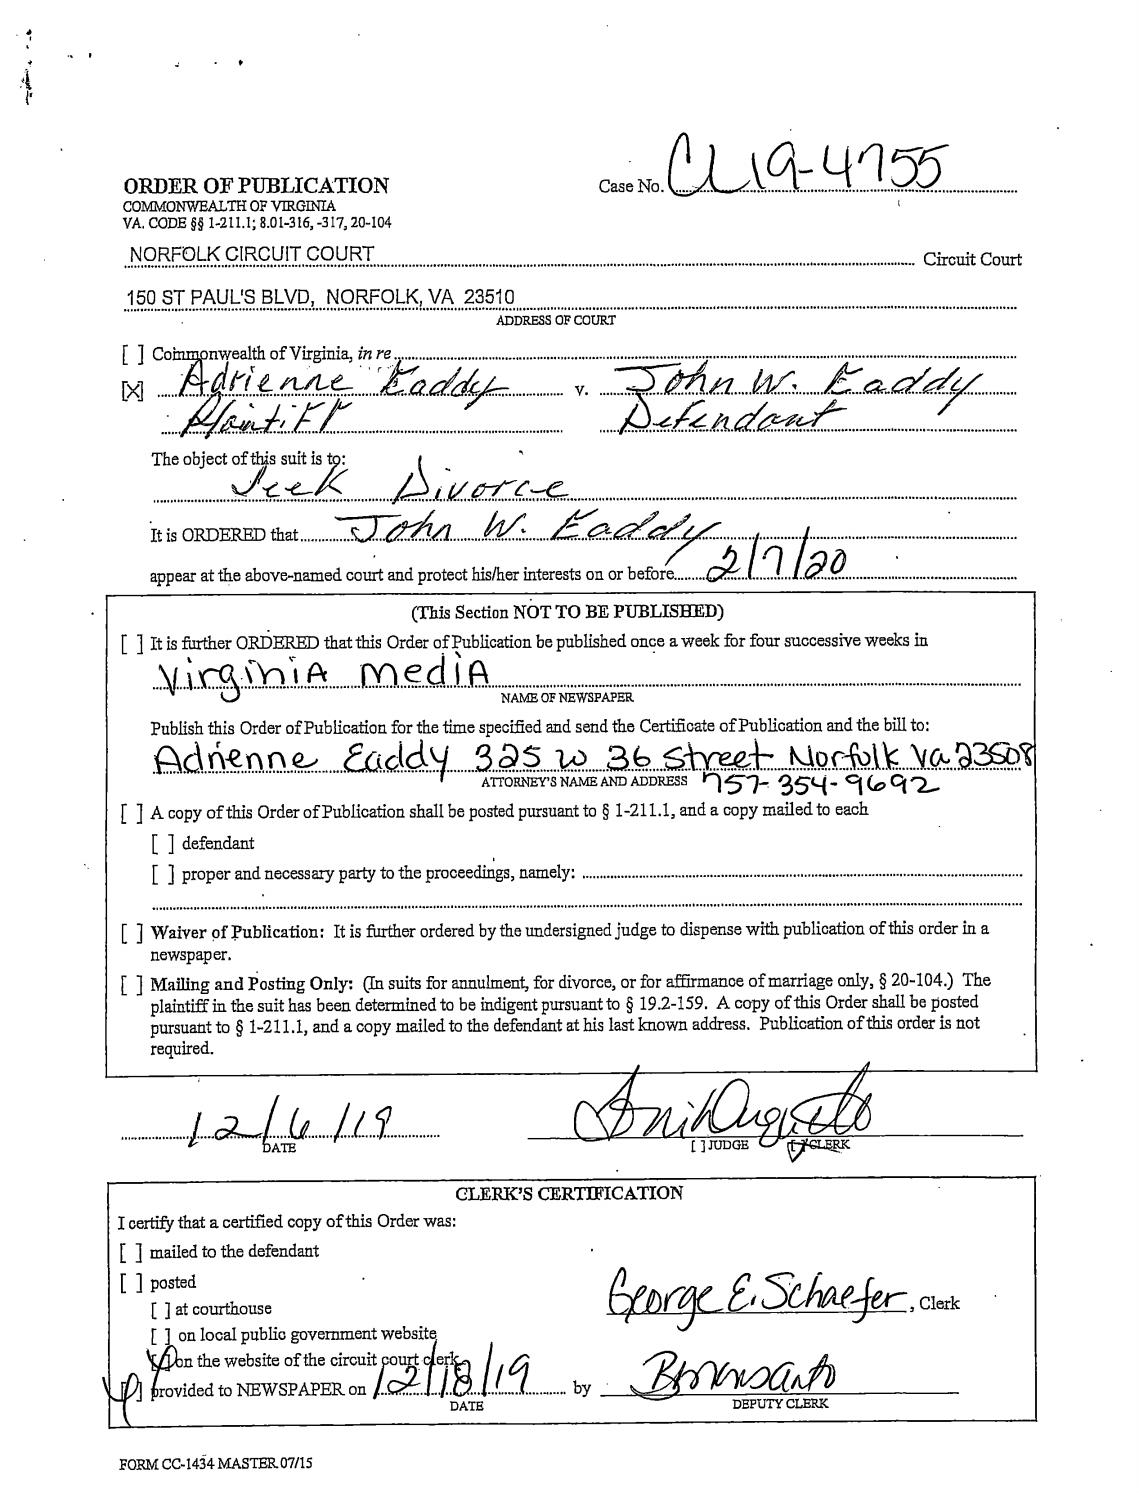 ORDER OF PUBLICATION
Case No. CL19-4755
COMMONWEALTH OF VIRGINIA
VA. CODE §§ 1-211.1; 8.01-316, -317, 20-104
NORFOLK CIRCUIT COURT Circuit Court
150 ST PAUL'S BLVD, NORFOLK, VA 23510
ADDRESS OF COURT
[ ] Commonwealth of Virginia, in re
[X] Adrienne Eaddy v. John W. Eaddy
Plaintiff Defendant
The object of this suit is to:
Seek Divorce
It is ORDERED that John W. Eaddy
appear at the above-named court and protect his/her interests on or before 2/7/20
(This Section NOT TO BE PUBLISHED)
[ ] It is further ORDERED that this Order of Publication be published once a week for four successive weeks in
Virginia Media
NAME OF NEWSPAPER
Publish this Order of Publication for the time specified and send the Certificate of Publication and the bill to:
Adrienne Eaddy 325 W 36 Street Norfolk Va 23508
ATTORNEY'S NAME AND ADDRESS 757-354-9692
[ ] A copy of this Order of Publication shall be posted pursuant to § 1-211.1, and a copy mailed to each
[ ] defendant
[ ] proper and necessary party to the proceedings, namely:
[ ] Waiver of Publication: It is further ordered by the undersigned judge to dispense with publication of this order in a
newspaper.
[ ] Mailing and Posting Only: (In suits for annulment, for divorce, or for affirmance of marriage only, § 20-104.) The
plaintiff in the suit has been determined to be indigent pursuant to § 19.2-159. A copy of this Order shall be posted
pursuant to § 1-211.1, and a copy mailed to the defendant at his last known address. Publication of this order is not
required.
12/6/19
DATE [ ] JUDGE [✓] CLERK
CLERK'S CERTIFICATION
I certify that a certified copy of this Order was:
[ ] mailed to the defendant
[ ] posted
George E. Schaefer, Clerk
[ ] at courthouse
[ ] on local public government website
[✓] on the website of the circuit court clerk
[✓] provided to NEWSPAPER on 12/18/19 by BMonsanto
DATE DEPUTY CLERK
FORM CC-1434 MASTER 07/15